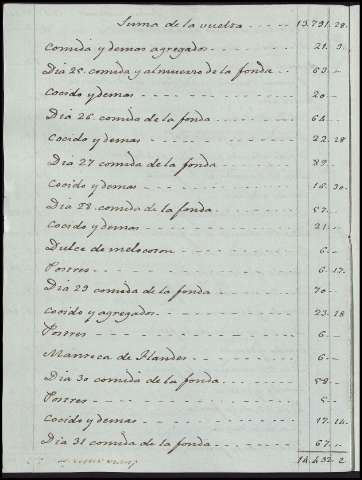 Suma de la vuelta - - - - 13.791. 28.
Comida y demas agregados - - - - 21. 9.
Dia 25. comida y almuerzo de la fonda - - 63. —
Cocido y demas - - - - 20 —
Dia 26 comida de la fonda - - - - 64. —
Cocido y demas - - - - 22. 28
Dia 27 comida de la fonda - - - -
Cocido y demas - - - - 16. 30.
Dia 28. comida de la fonda - - - - 57. —
Cocido y demas - - - - 21. —
Dulce de melocoton - - - - 6 —
Postres - - - - 6. 17.
Dia 29 comida de la fonda - - - - 70 —
Cocido y agregados - - - - 23. 18
Postres - - - - 6. —
Manteca de Flandes - - - - 6 —
Dia 30 comida de la fonda - - - -
Postres - - - - 5 —
Cocido y demas - - - - 17. 14.
Dia 31 comida de la fonda - - - - 67. —
14.432. 2